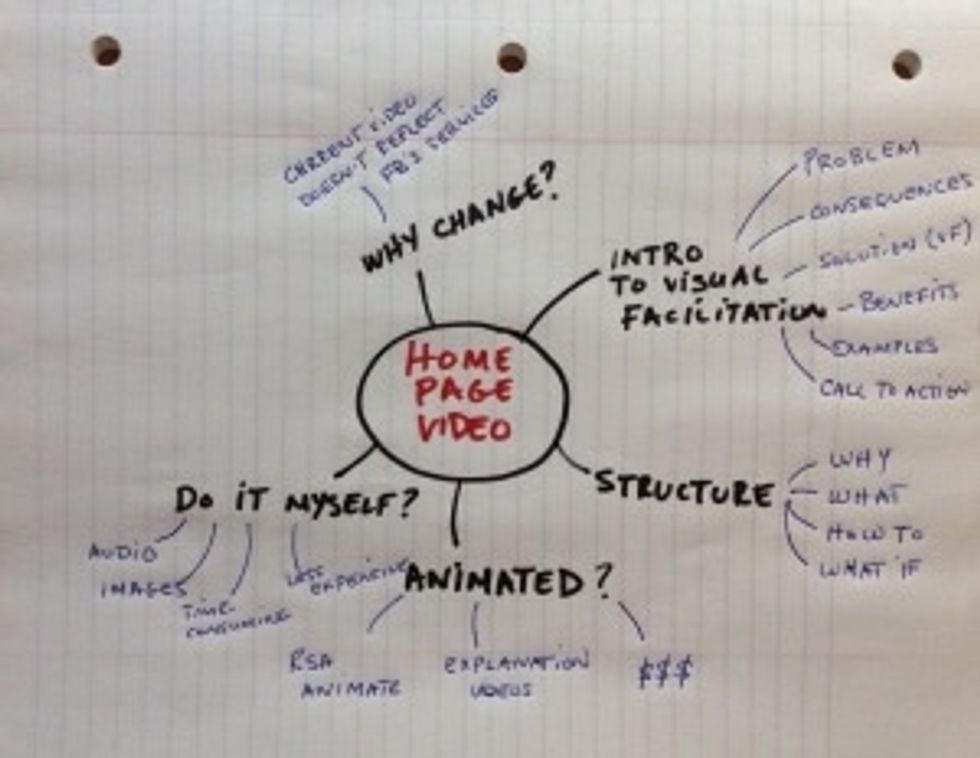 CURRENT VIDEO
DOESN'T REFLECT
FB'S SERVICES
WHY CHANGE?
INTRO
TO VISUAL
FACILITATION
PROBLEM
CONSEQUENCES
SOLUTION (VF)
BENEFITS
EXAMPLES
CALL TO ACTION
HOME
PAGE
VIDEO
STRUCTURE
WHY
WHAT
HOW TO
WHAT IF
DO IT MYSELF?
AUDIO
IMAGES
TIME
CONSUMING
LESS
EXPENSIVE
ANIMATED?
RSA
ANIMATE
EXPLANATION
VIDEOS
$$$